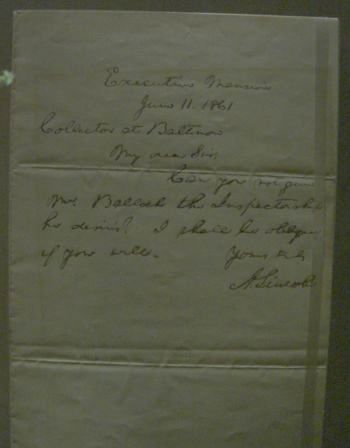 Executive Mansion
June 11. 1861
Collector at Baltimore
My dear Sir.
Can you not give
Mr. the Inspectorship
he desires? I shall be obliged
if you will.
Yours &c
A. Lincoln